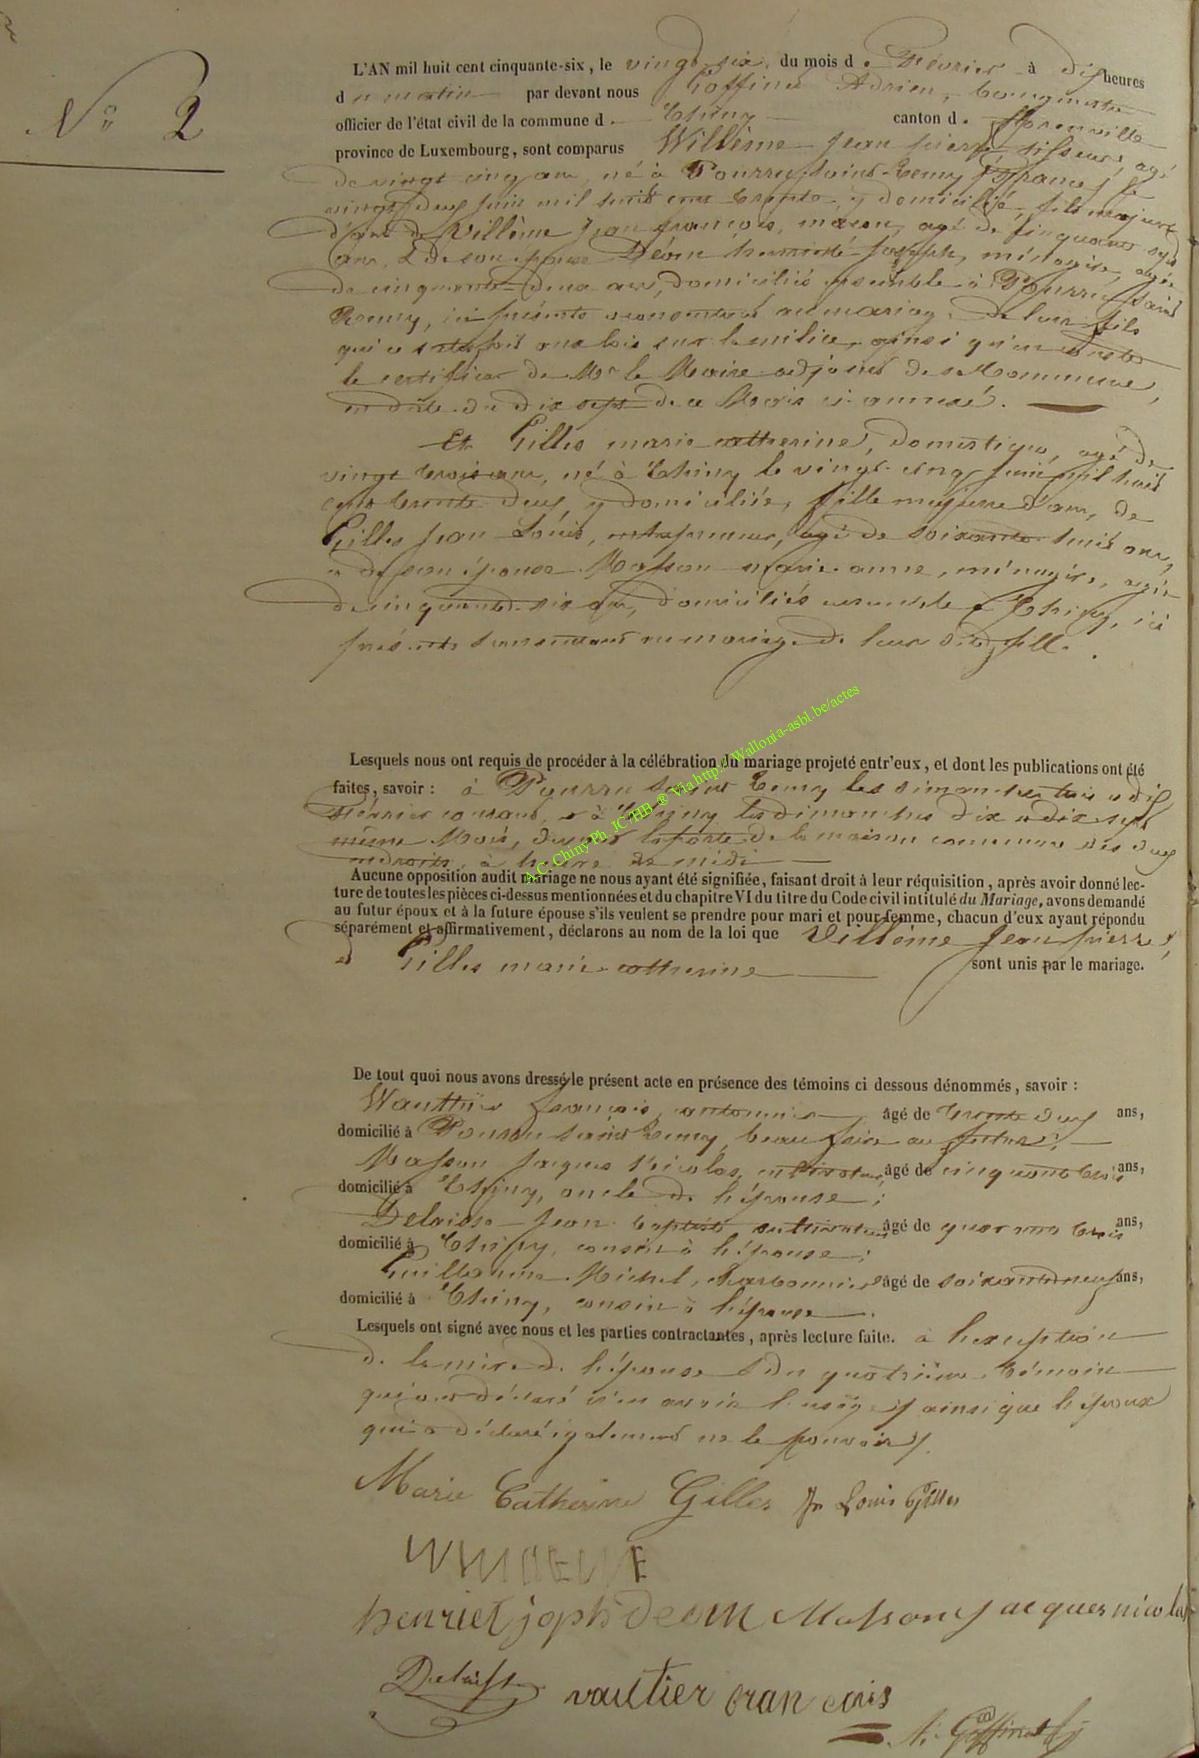 N° 2
L'AN mil huit cent cinquante-six, le vingt-six du mois de Février à dix heures
du matin par devant nous Goffinet Adrien, bourgmestre
officier de l'état civil de la commune de Chiny canton de Florenville
province de Luxembourg, sont comparus Willème Jean pierre, agé
de vingt cinq ans, né à Pourru-saint-Remy (france) le
vingt deux juin mil huit cent trente, y domicilié, fils majeur
d'ans de Willème Jean françois, maçon, agé de cinquante sept
ans, & de son épouse Déom henriette joseph, ménagère, agée
de cinquante deux ans, domiciliés ensemble à Pourru saint
Remy, ici présents consentant au mariage de leur fils
qui a satisfait aux lois sur la milice, ainsi qu'en conste
le certificat de Mr le Maire adjoint de sa Commune,
en date du dix sept de ce Mois ci annexé.
Et Gilles marie catherine, domestique, agé de
vingt trois ans, né à Chiny le vingt-cinq juin mil huit
cent trente deux, y domiciliée, fille majeure d'ans, de
Gilles Jean Louis, entrepreneur, agé de soixante huit ans,
et de son épouse Masson marie anne, ménagère, agée
de cinquante six ans, domiciliés ensemble à Chiny, ici
présents consentant au mariage de leur dite fille.
Lesquels nous ont requis de procéder à la célébration du mariage projeté entr'eux, et dont les publications ont été
faites, savoir : à Pourru saint Remy les dimanches trois & dix
Février courant, & à Chiny les dimanches dix & dix sept
même Mois, devant la porte de la maison commune des deux
endroits, à heure de midi
Aucune opposition audit mariage ne nous ayant été signifiée, faisant droit à leur réquisition, après avoir donné lec-
ture de toutes les pièces ci-dessus mentionnées et du chapitre VI du titre du Code civil intitulé du Mariage, avons demandé
au futur époux et à la future épouse s'ils veulent se prendre pour mari et pour femme, chacun d'eux ayant répondu
séparément et affirmativement, déclarons au nom de la loi que Willème Jean pierre,
et Gilles marie catherine sont unis par le mariage.
A.C. Chiny Ph JC/HB ® Via http://Wallonia-asbl.be/actes
De tout quoi nous avons dressé le présent acte en présence des témoins ci dessous dénommés, savoir :
Wauthier François, âgé de trente deux ans,
domicilié à Pourru saint Remy, beau frère au futur;
Masson Jacques Nicolas, cultivateur, âgé de cinquante trois ans,
domicilié à Chiny, oncle de l'épouse;
Delaisse Jean Baptiste cultivateur âgé de quarante trois ans,
domicilié à Chiny, cousin à l'épouse;
Guillaume Michel, charbonnier âgé de soixante neuf ans,
domicilié à Chiny, cousin à l'épouse.
Lesquels ont signé avec nous et les parties contractantes, après lecture faite. à l'exception
de la mère de l'épouse & du quatrième témoin
qui ont déclaré n'en avoir l'usage, ainsi que l'époux
qui a déclaré également ne le pouvoir.
Marie Catherine Gilles Jn Louis Gilles
henriet joph deom Masson jacques nicolas
Delaisse vautier francois
A. Goffinet